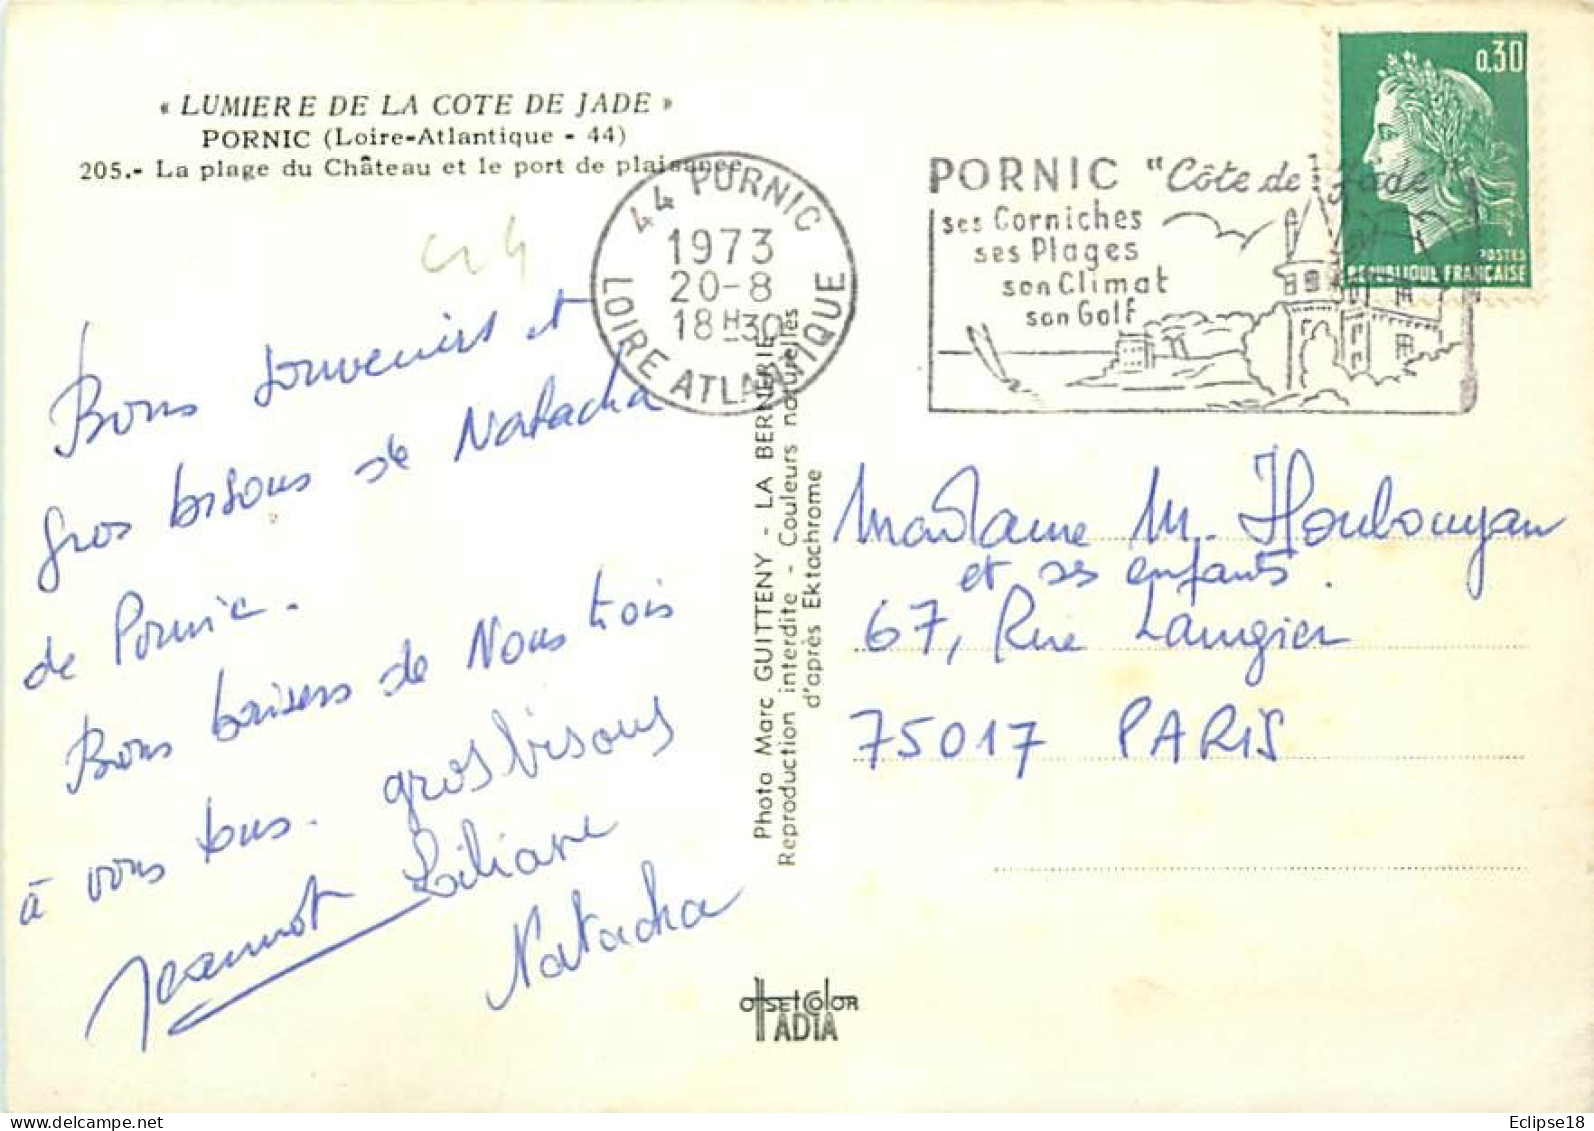 « LUMIERE DE LA COTE DE JADE »
PORNIC (Loire-Atlantique - 44)
205.- La plage du Château et le port de plaisance
44 PORNIC
1973
20-8
18H30
LOIRE ATLANTIQUE
PORNIC "Côte de Jade"
ses Corniches
ses Plages
son Climat
son Golf
0,30
POSTES
REPUBLIQUE FRANÇAISE
Bons souvenirs et
gros bisous de Natacha
de Pornic.
Bons baisers de Nous trois
à vous tous. gros bisous
Jeannot Liliane
Natacha
Photo Marc GUITTENY - LA BERNERIE
Reproduction interdite - Couleurs naturelles
d'après Ektachrome
Madame M. Houbouyan
et ses enfants.
67, Rue Laugier
75017 PARIS
OffsetColor
IADIA
Eclipse18